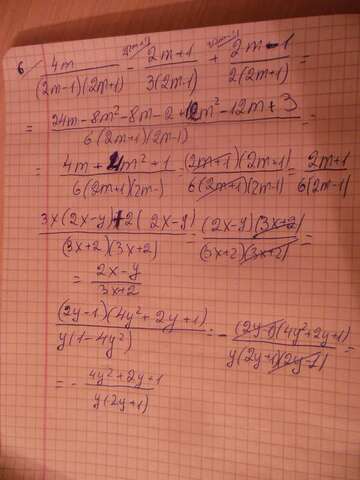 6. \frac{4m}{(2m-1)(2m+1)} - \frac{2m+1}{3(2m-1)} + \frac{2m-1}{2(2m+1)} =
= \frac{24m-8m^2-8m-2+12m^2-12m+3}{6(2m+1)(2m-1)} =
= \frac{4m+4m^2+1}{6(2m+1)(2m-} = \frac{(2m+1)(2m+1)}{6(2m+1)(2m-1)} = \frac{2m+1}{6(2m-1)}
\frac{3x(2x-y)+2(2x-y)}{(3x+2)(3x+2)} = \frac{(2x-y)(3x+2)}{(3x+2)(3x+2)} =
= \frac{2x-y}{3x+2}
\frac{(2y-1)(4y^2+2y+1)}{y(1-4y^2)} = -\frac{(2y-1)(4y^2+2y+1)}{y(2y+1)(2y-1)} =
= -\frac{4y^2+2y+1}{y(2y+1)}